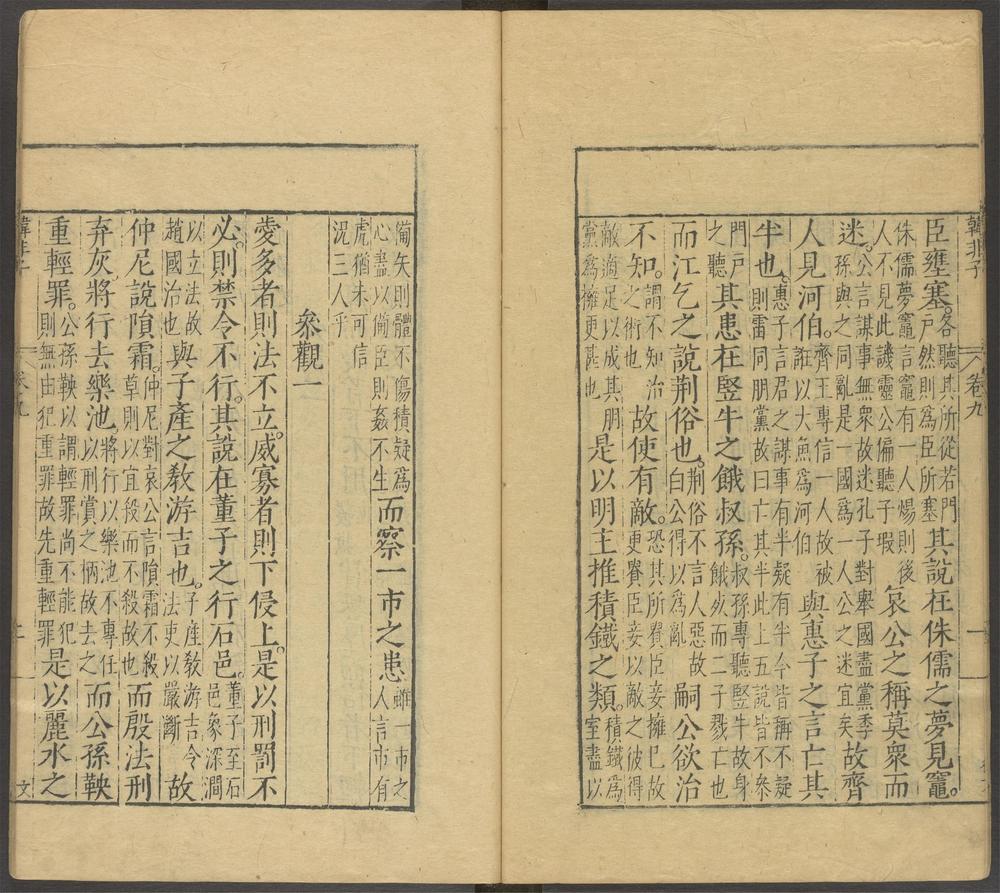 韓非子 卷九 一
臣壅塞。各聽其所從若門戶然則爲臣所塞其說在侏儒之夢見竈。
侏儒夢竈言竈有一人煬則後人不見此譏靈公偏聽子瑕哀公之稱莫衆而
迷。公言謀事無衆故迷孔子對舉國盡黨季孫與之同亂是一國爲一人公之迷宜矣故齊
人見河伯。齊王專信一人故被誑以大魚爲河伯與惠子之言亡其
半也。惠子言君之謀事有半疑有半今皆稱不疑則雷同朋黨故曰亡其半此上五說皆不叅
門戶之聽其患在竪牛之餓叔孫。叔孫專聽竪牛故身餓死而二子戮亡也
而江乞之說荆俗也。荆俗不言人惡故白公得以爲亂嗣公欲治
不知。謂不知治之術也故使有敵。恐其所貴臣妾擁已故更貴臣妾以敵之彼得
敵適足以成其朋黨爲擁更甚也是以明主推積鐵之類。積鐵爲室盡以
備矢則體不傷積疑爲心盡以備臣則姦不生而察一市之患雖一市之人言市有
虎猶未可信況三人乎
叅觀一
愛多者則法不立。威寡者則下侵上。是以刑罰不
必。則禁令不行。其說在董子之行石邑。董子至石邑象深澗
以立法故趙國治也與子產之教游吉也。子產教游吉令法吏以嚴斷故
仲尼說隕霜。仲尼對哀公言隕霜不殺草則以宜殺而不殺故也而殷法刑
弃灰。將行去樂池。將行以樂池不專任以刑賞之柄故去之而公孫鞅
重輕罪。公孫鞅以謂輕罪尚不能犯則無由犯重罪故先重輕罪是以麗水之
韓非子 卷九 二 文